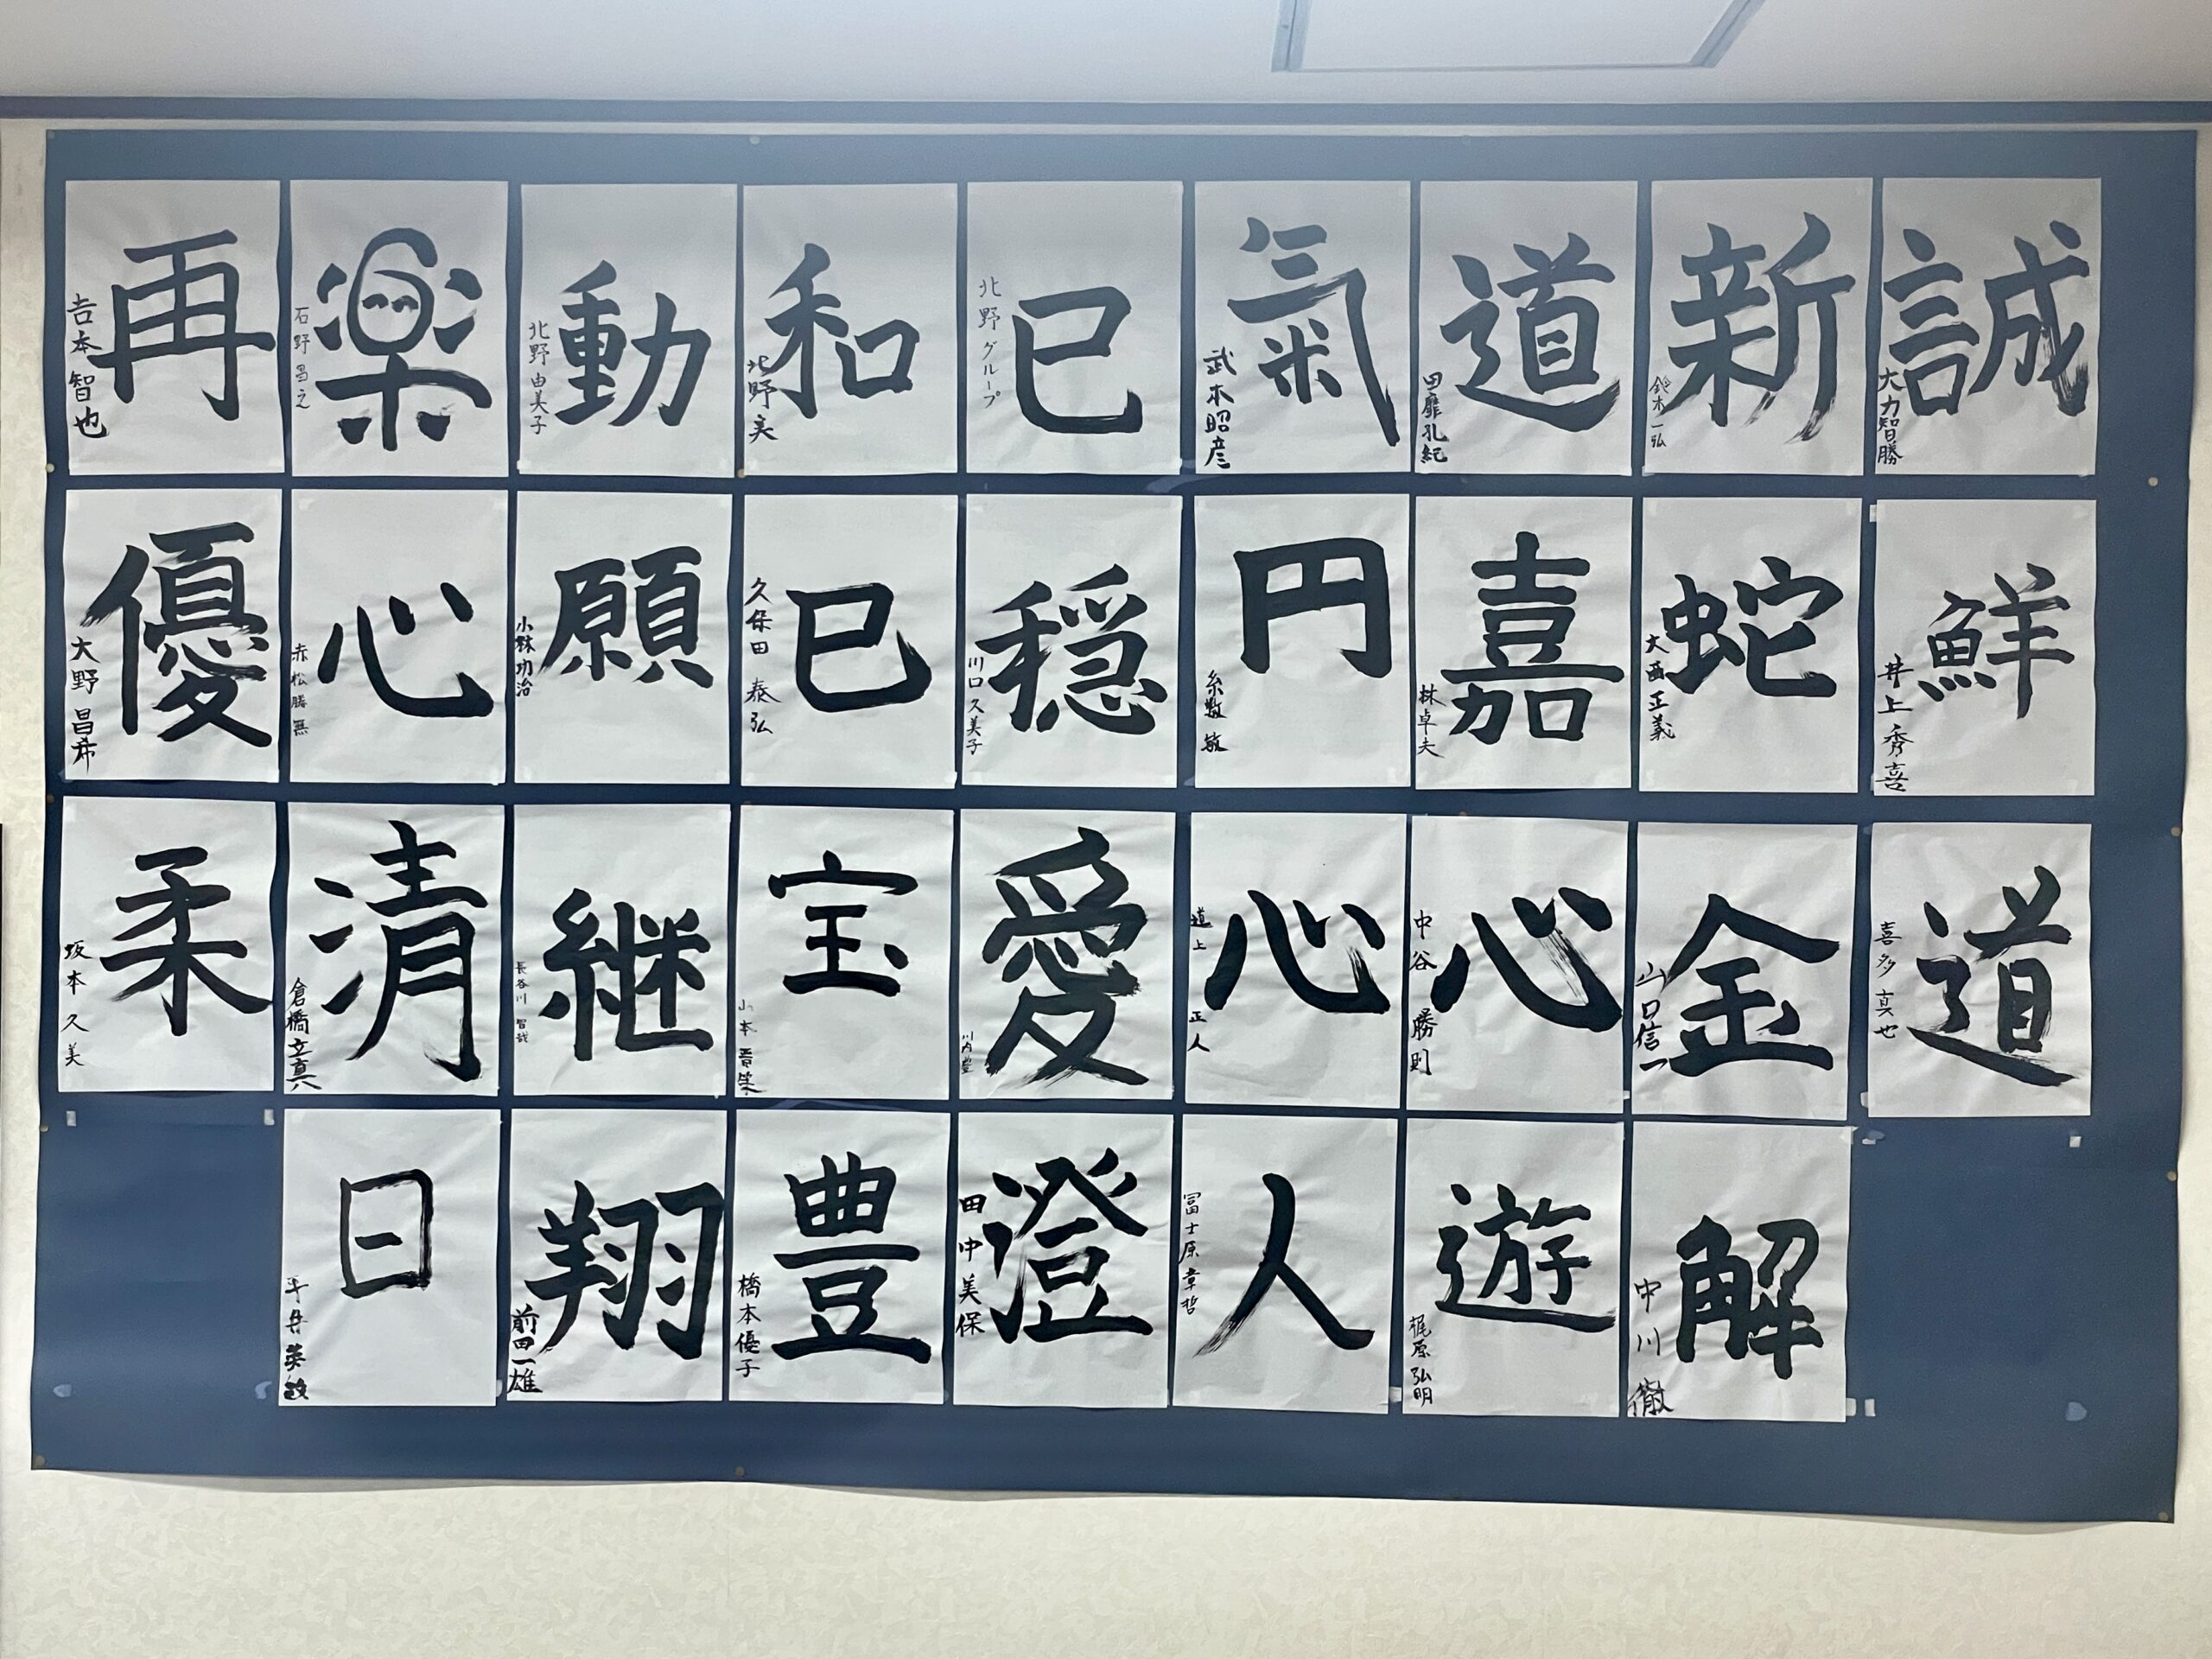 誠
大力智勝
新
鈴木一弘
道
気
武本昭彦
巳
北野グループ
和
北野実
動
北野由美子
楽
石野昌之
再
吉本智也
鮮
井上秀喜
蛇
大西正義
嘉
林卓夫
円
糸数敏
穏
川口久美子
巳
久保田泰弘
願
小林功治
心
赤松勝無
優
大野昌希
道
喜多真也
金
山口信一
心
中谷勝則
心
道上正人
愛
川内豊
宝
山本
継
長谷川智哉
清
倉橋立真
柔
坂本久美
解
中川徹
遊
梶原弘明
人
冨士原章哲
澄
田中美保
豊
橋本優子
翔
前田一雄
日